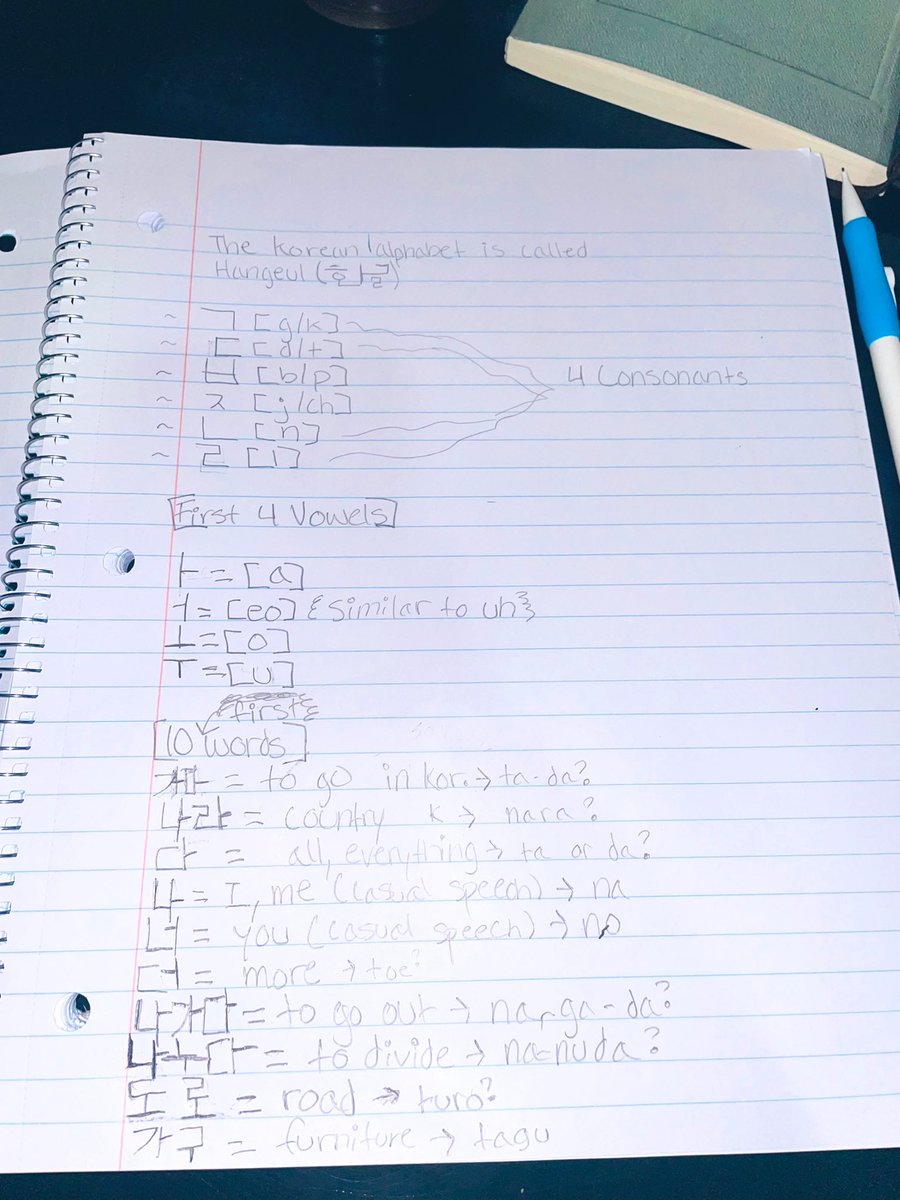 The Korean alphabet is called
Hangeul (한글)
~ ㄱ [g/k]
~ ㄷ [d/t]
~ ㅂ [b/p]
4 Consonants
~ ㅈ [j/ch]
~ ㄴ [n]
~ ㄹ [l]
[First 4 Vowels]
ㅏ = [a]
ㅓ = [eo] {similar to uh}
ㅗ = [o]
ㅜ = [u]
first
[10 words]
= to go in kor. → ta-da?
나라 = country k → nara?
다 = all, everything → ta or da?
나 = I, me (casual speech) → na
너 = you (casual speech) → no
더 = more → toe?
나가다 = to go out → na-ga-da?
나누다 = to divide → na-nuda?
도로 = road → turo?
가구 = furniture → tagu